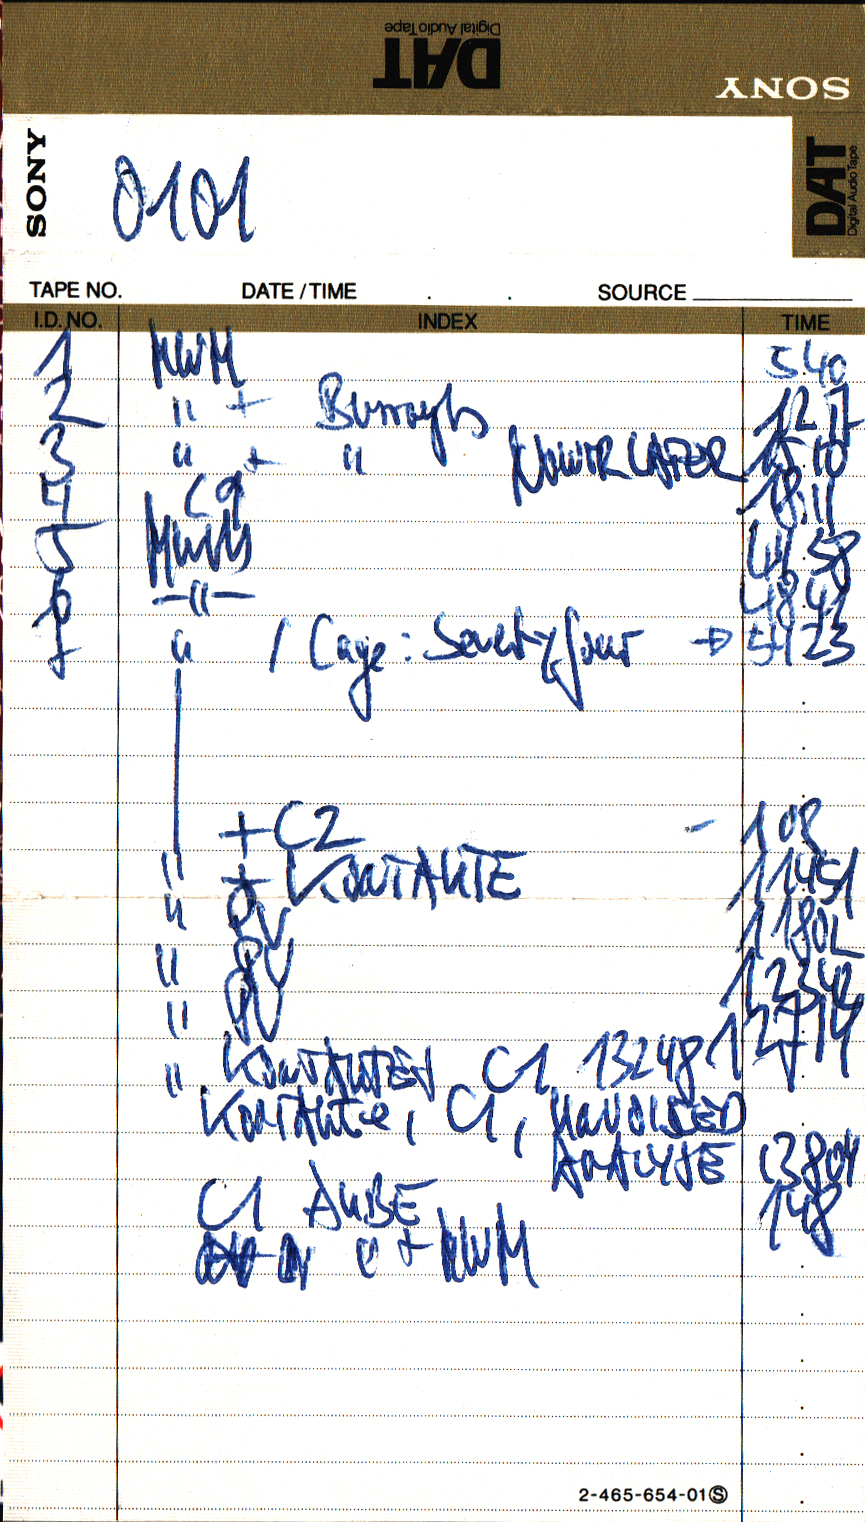 DAT
Digital Audio Tape
SONY
SONY
DAT
Digital Audio Tape
0101
TAPE NO. DATE / TIME . . SOURCE
I.D. NO. INDEX TIME
1 MWM 540
2 " + Burroughs 12 17
3 " + " 15 10
4 C9 18.11
5 MWM 44.58
6 -"- 48 41
7 " / Cage: Seventyfour → 51 23
+ C2 - 108
" + KONTAKTE 11451
" 8V 11802
" 8V 12342
" 8V 12714
" KONTAKTEN C1 13248
KONTAKTE, C1,
ANALYSE 13804
C1 148
" + MWM
2-465-654-01 Ⓢ